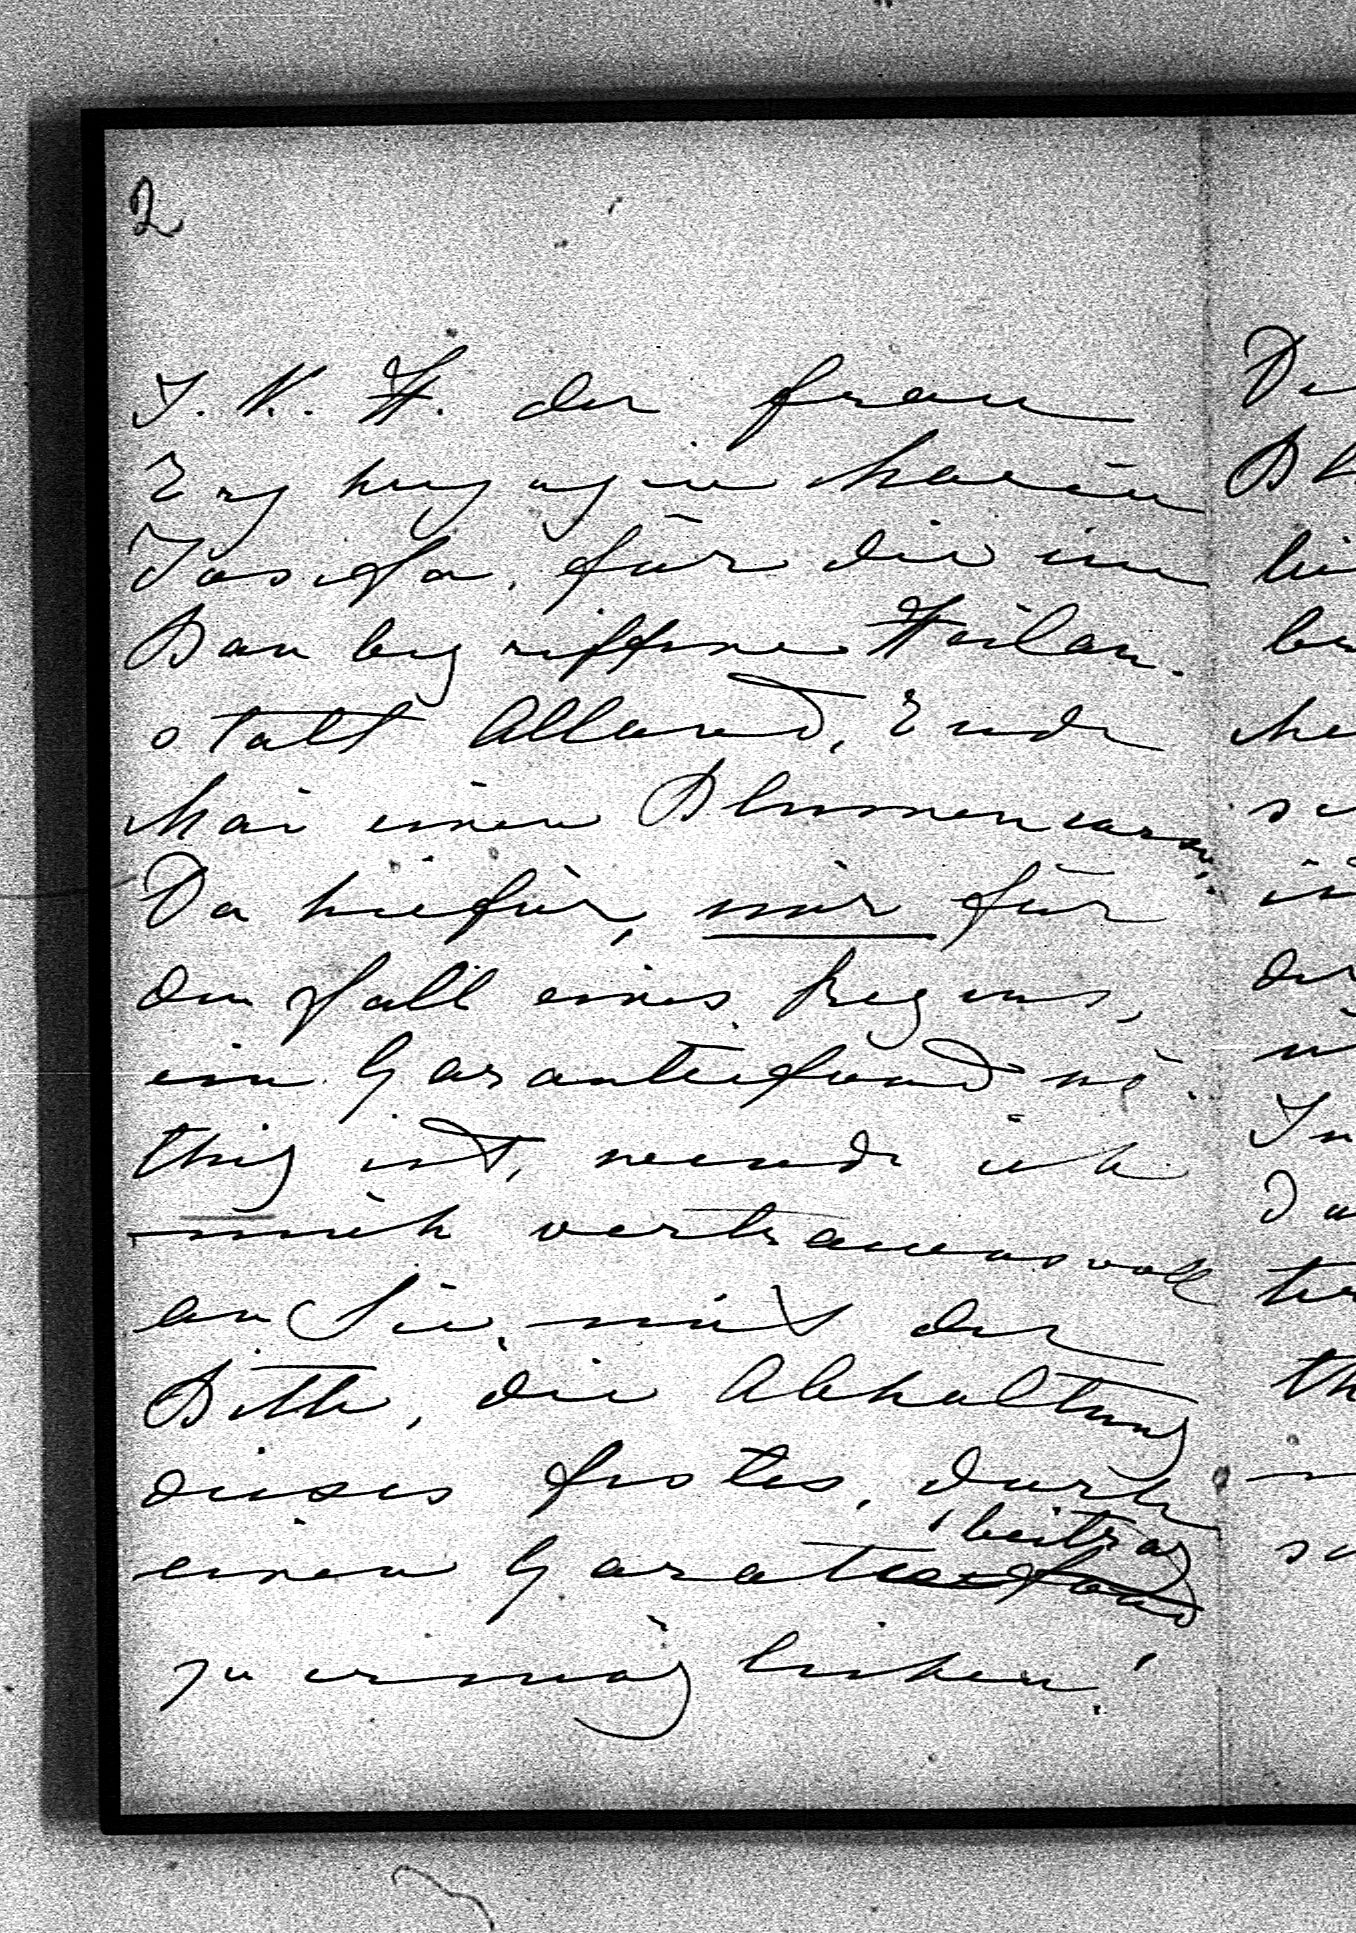 2
I. K. H. der Frau
Erzherzogin Maria
Josefa, für die im
Bau begriffene Heilan-
stalt Alland, Ende
Mai einen Blumencorso.
Da hiefür, nur für
den Fall eines Regens,
ein Garantiefond nö-
thig ist, wende ich
mich vertrauensvoll
an Sie, mit der
Bitte, die Abhaltung
dieses Festes, durch
beitrag
einen Garatiefond
zu ermöglichen!